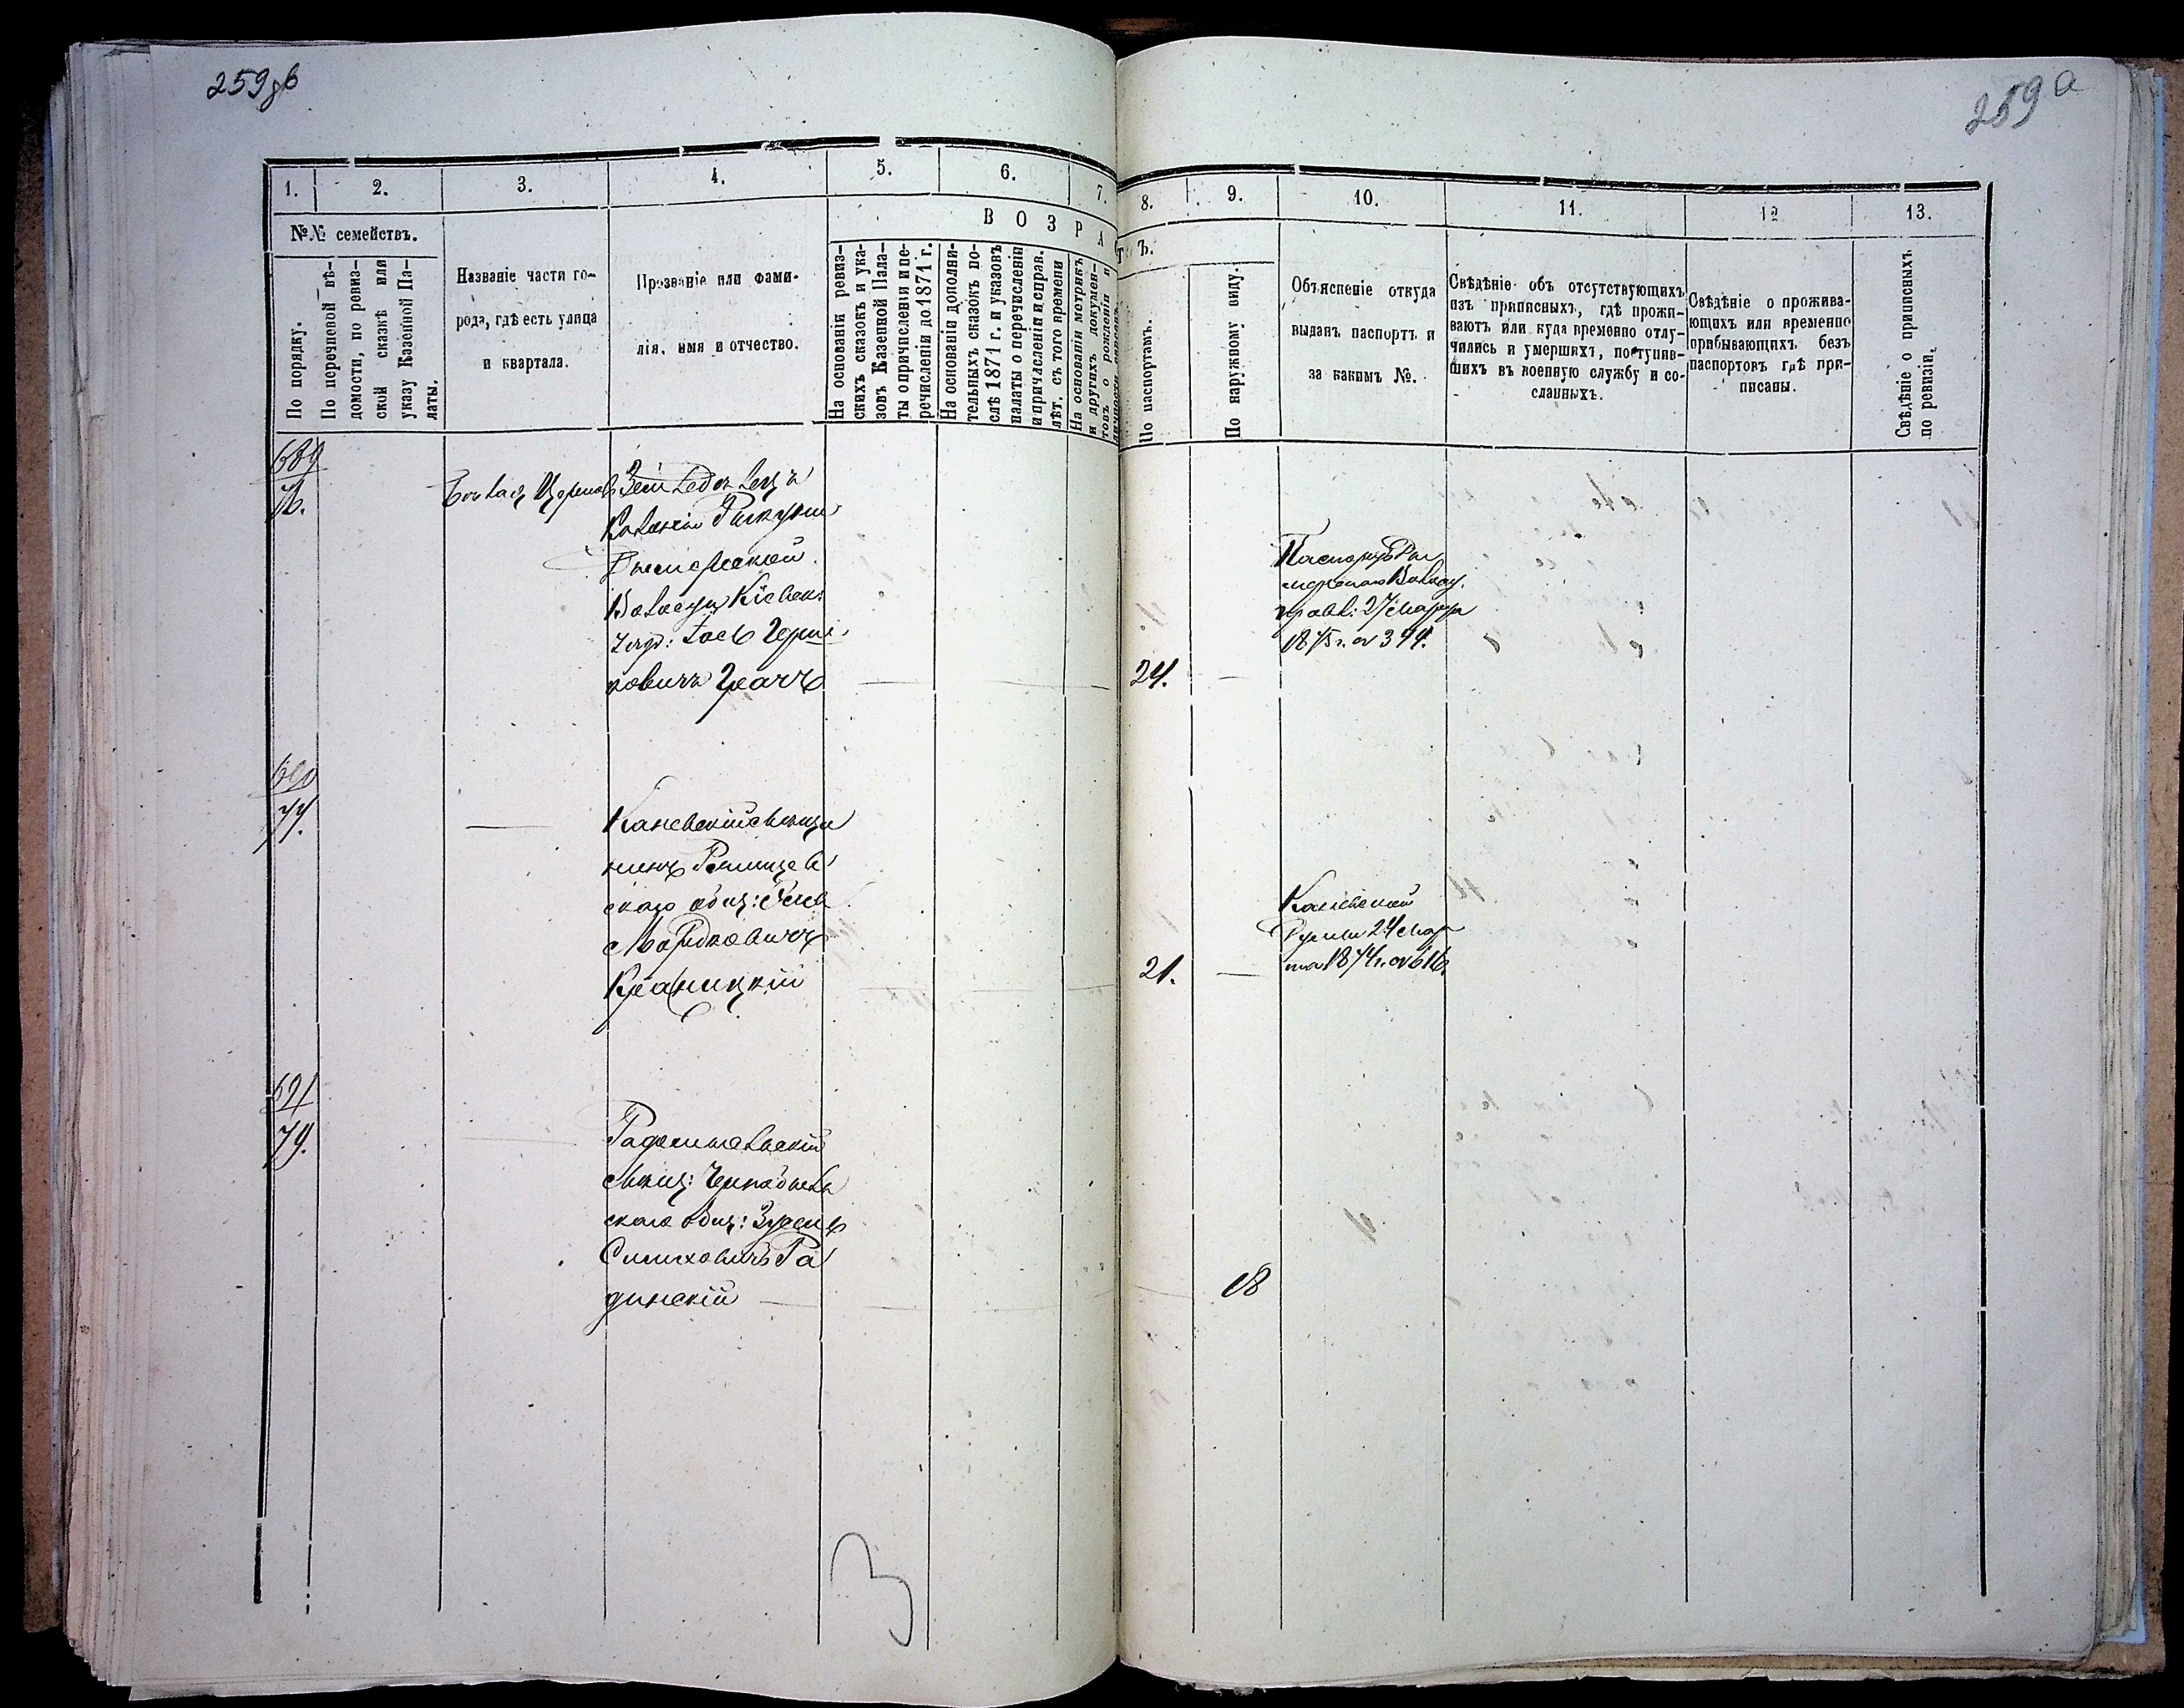 259
259 а
1.
2.
3.
4.
5.
6.
7.
8.
9.
10.
11.
12
13.
№№ семействъ.
По порядку.
По перечневой вѣ-
домости, по ревиз-
ской сказкѣ или
указу Казенной Па-
латы.
Названіе части го-
рода, гдѣ есть улица
и квартала.
Прозваніе или фами-
лія, имя и отчество.
ВОЗРАСТЪ.
На основаніи ревиз-
скихъ сказокъ и ука-
зовъ Казенной Пала-
ты о причисленіи и пе-
речисленіи до 1871 г.
На основаніи дополни-
тельныхъ сказокъ по-
слѣ 1871 г. и указовъ
палаты о перечисленіи
и причисленіи и справ.
лѣт. съ того времени
На основаніи метрикъ
и другихъ докумен-
товъ о рожденіи и
личности евреевъ.
По паспортамъ.
По наружному виду.
Объясненіе откуда
выданъ паспортъ и
за какимъ №.
Свѣдѣніе объ отсутствующихъ
изъ приписныхъ, гдѣ прожи-
ваютъ или куда временно отлу-
чились и умершихъ, поступив-
шихъ въ военную службу и со-
сланныхъ.
Свѣдѣніе о прожива-
ющихъ или временно
прибывающихъ безъ
паспортовъ гдѣ при-
писаны.
Свѣдѣніе о приписныхъ
по ревизіи.
689
76.
Земледѣлецъ
Колоніи
Волости Кіевск:
Губ:
ковичъ Грачъ
24.
Волост.
правл: 27 Марта
1875 г. № 394.
690
77.
Каневскій мѣща
нинъ Ржищев
скаго общ:
Мордковичъ
Краницкій
21.
Каневской
Думы 24 Мар
та 1874 г. № 616.
691
79.
Радомысльскій
мѣщ: Чернобыль
скаго общ:
Симховичъ Ра
динскій
18
3